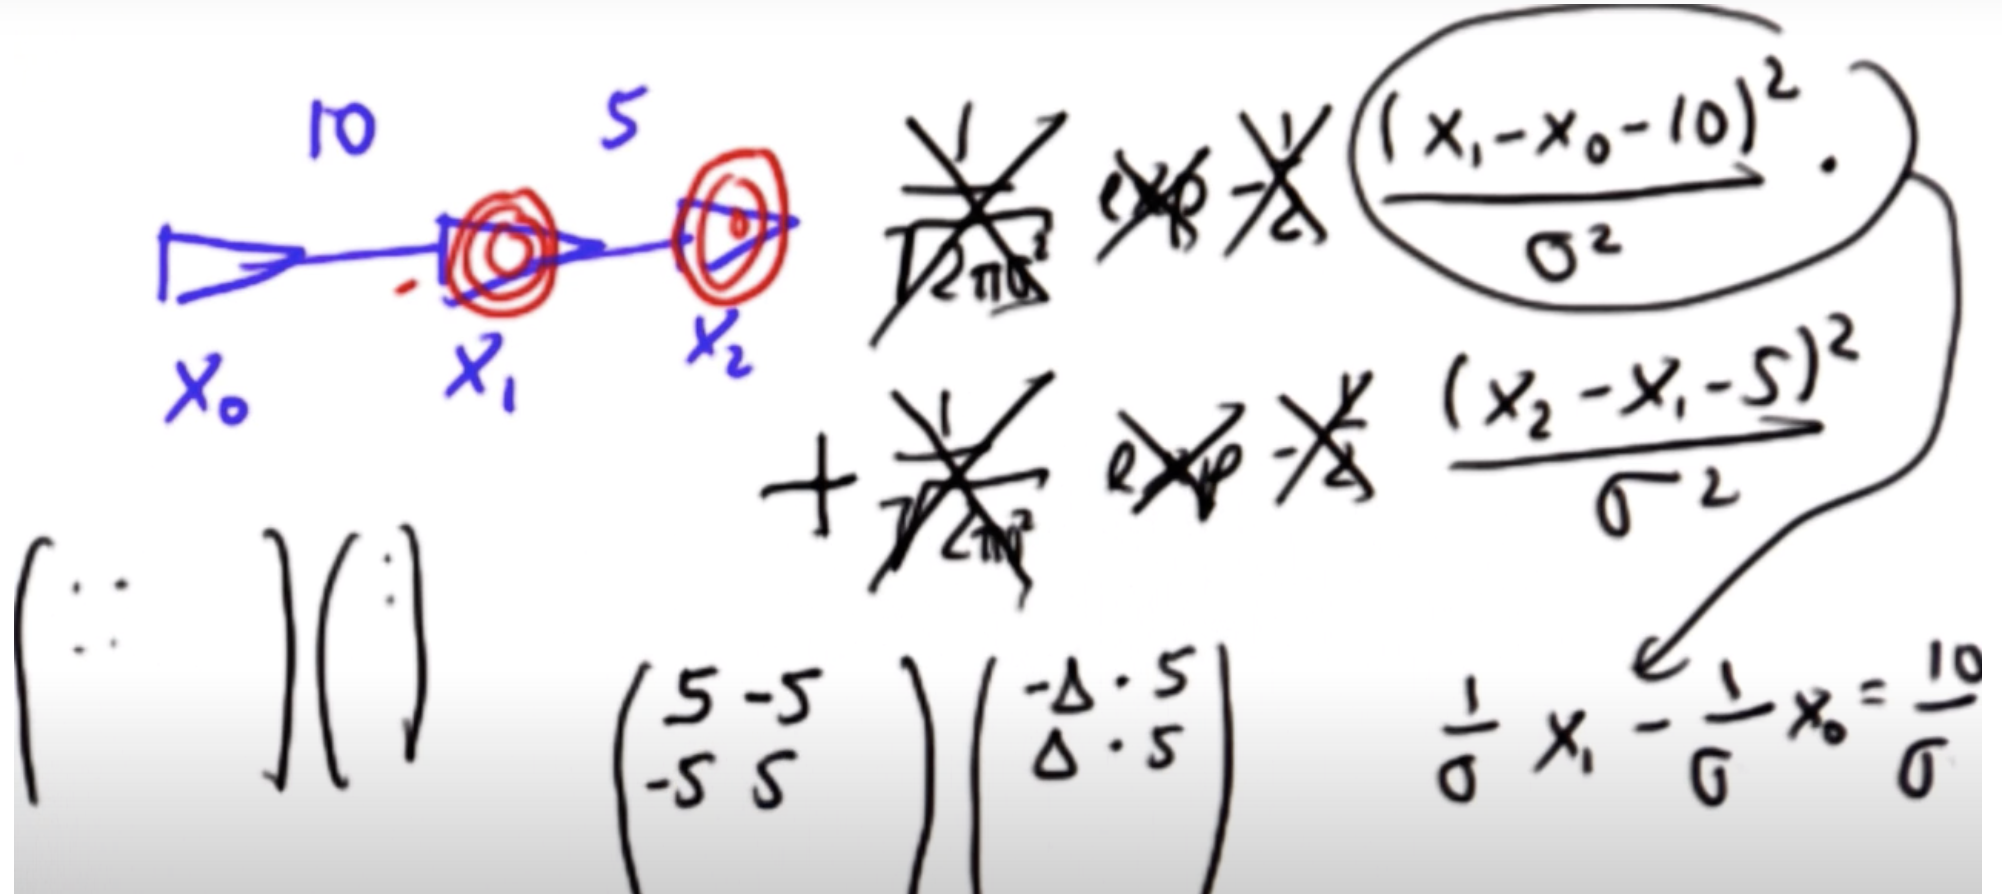 10 5
x₀ x₁ x₂
1/√(2πσ²) exp -1/2 (x₁ - x₀ - 10)²/σ² ·
+ 1/√(2πσ²) exp -1/2 (x₂ - x₁ - 5)²/σ²
5 -5
-5 5
-Δ · 5
Δ · 5
1/σ x₁ - 1/σ x₀ = 10/σ